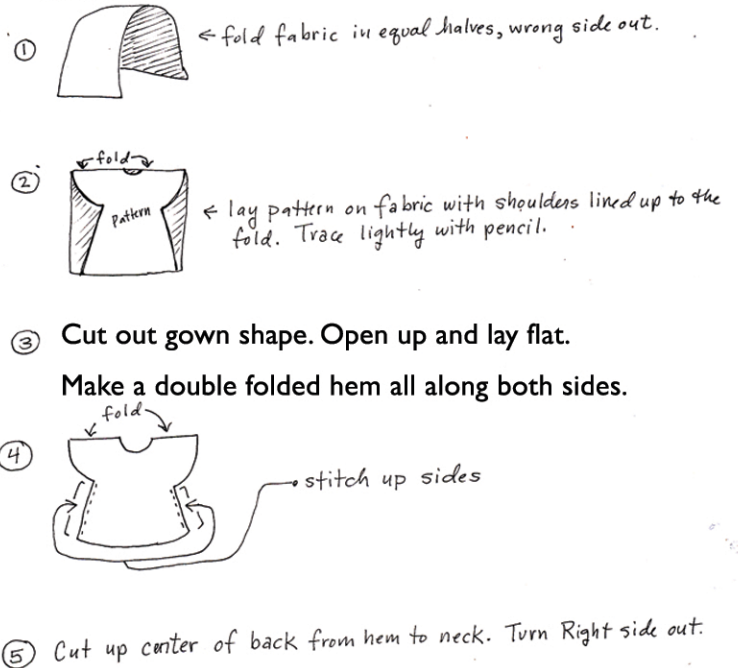 ① ← fold fabric in equal halves, wrong side out.
② fold
Pattern
← lay pattern on fabric with shoulders lined up to the
fold. Trace lightly with pencil.
③ Cut out gown shape. Open up and lay flat.
Make a double folded hem all along both sides.
fold
④ stitch up sides
⑤ Cut up center of back from hem to neck. Turn Right side out.